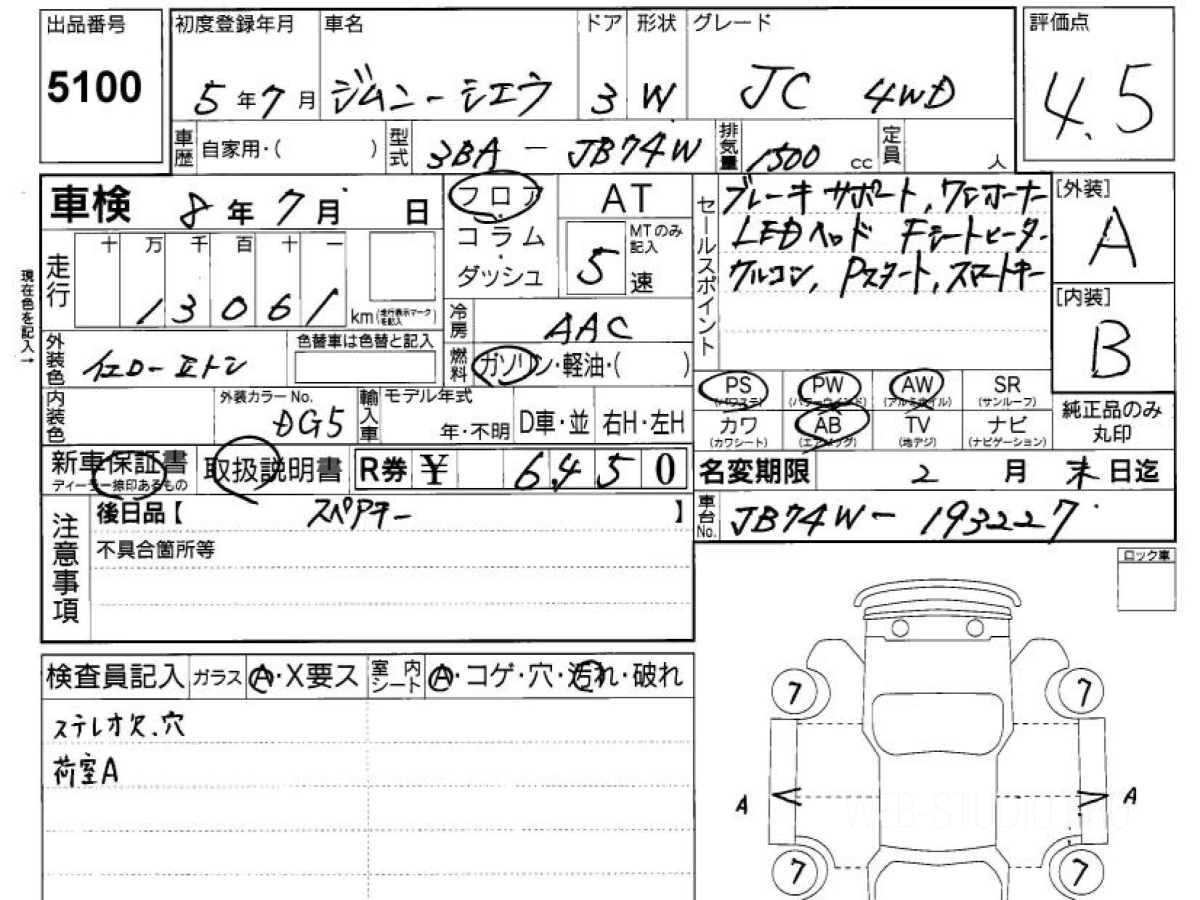 出品番号
5100
初度登録年月
5年7月
車名
ジムニーシエラ
ドア
3
形状
W
グレード
JC 4WD
評価点
4.5
車歴 自家用・( )
型式 3BA-JB74W
排気量 1500 cc
定員 人
車検 8年7月 日
走行
十 万 千 百 十 一
13061 km (走行表示マークを記入)
現在色を記入→
外装色
イエロー 2トン
色替車は色替と記入
内装色
外装カラーNo.
DG5
輸入車
モデル年式
年・不明
D車・並
右H・左H
フロア
・
コラム
・
ダッシュ
AT
5
MTのみ記入
速
冷房 AAC
燃料 ガソリン・軽油・( )
セールスポイント
ブレーキサポート, ワンオーナー
LEDヘッド Fシートヒーター
クルコン, Pスタート, スマートキー
[外装]
A
[内装]
B
純正品のみ
丸印
PS (パワステ)
PW (パワーウインド)
AW (アルミホイル)
SR (サンルーフ)
カワ (カワシート)
AB (エアバッグ)
TV (地デジ)
ナビ (ナビゲーション)
新車保証書
ディーラー捺印あるもの
取扱説明書
R券 ¥ 6450
名変期限 2月末日迄
車台No. JB74W-193227
注意事項
後日品【 スペアキー 】
不具合箇所等
ロック車
検査員記入
ガラス A・X要ス
室内シート A・コゲ・穴・汚れ・破れ
ステレオ欠.穴
荷室A
7
7
A
A
7
7
WEB-STUDIO.PRO